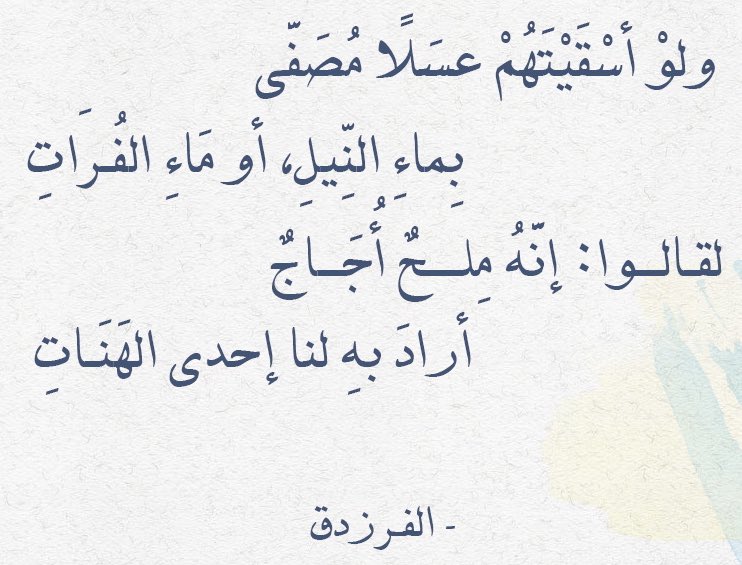 ولوْ أسْقَيْتَهُمْ عسَلًا مُصَفّى
بِماءِ النِّيلِ، أو مَاءِ الفُرَاتِ
لقالوا: إنّهُ مِلحٌ أُجَاجٌ
أرادَ بهِ لنا إحدى الهَنَاتِ
- الفرزدق